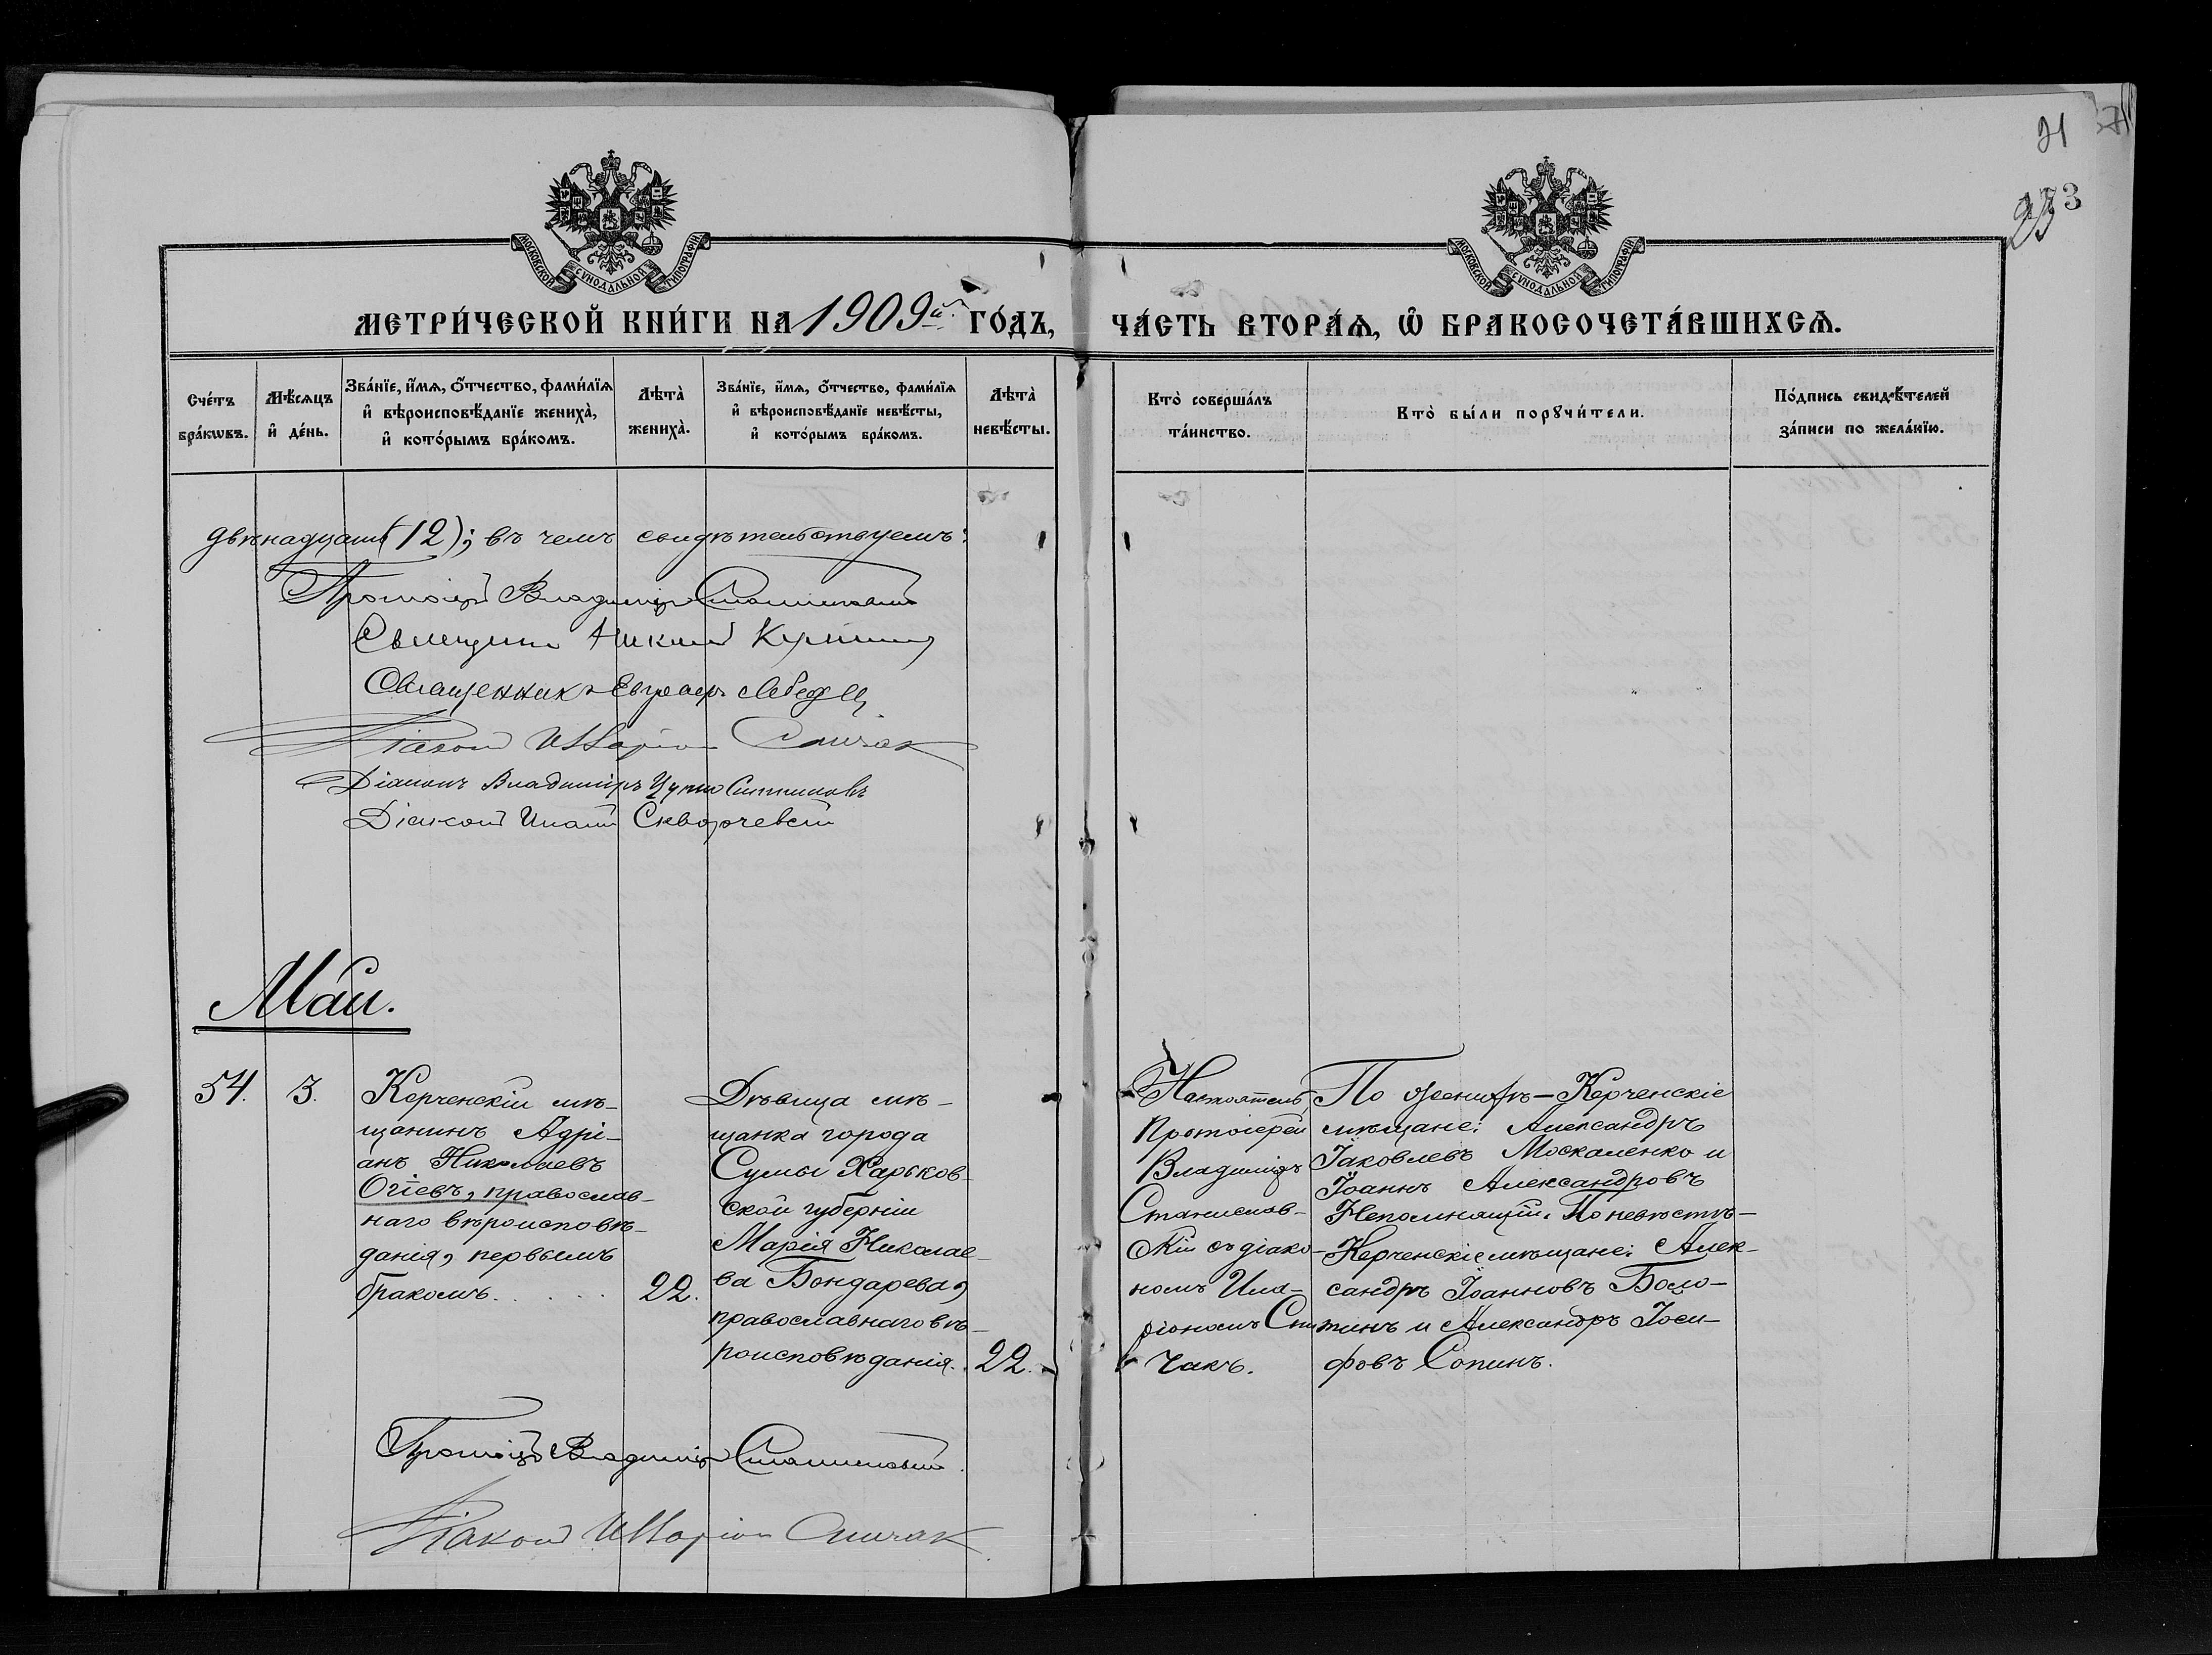 21
233
МОСКОВСКОЙ СѴНОДАЛЬНОЙ ТИПОГРАФІИ
МОСКОВСКОЙ СѴНОДАЛЬНОЙ ТИПОГРАФІИ
МЕТРИ́ЧЕСКОЙ КНИ́ГИ НА 1909й ГО́ДЪ,
ЧА́СТЬ ВТОРА́Ѧ, Ѽ БРАКОСОЧЕТА́ВШИХСѦ.
Сче́тъ бра́кѡвъ.
Мѣ́сѧцъ и҆ де́нь.
Зва́нїе, и҆́мѧ, ѻ҆́тчество, фами́лїѧ и҆ вѣроисповѣ́данїе жениха̀, и҆ кото́рымъ бра́комъ.
Лѣта̀ жениха̀.
Зва́нїе, и҆́мѧ, ѻ҆́тчество, фами́лїѧ и҆ вѣроисповѣ́данїе невѣ́сты, и҆ кото́рымъ бра́комъ.
Лѣта̀ невѣ́сты.
Кто̀ соверша́лъ та́инство.
Кто̀ бы́ли порꙋчи́тели.
По́дпись свидѣ́телей за́писи по жела́нїю.
двѣнадцать (12); въ чемъ свидѣтельствуемъ:
Протоіер Владиміръ Станиславскій
Священник
Священникъ Лебед
Діакон Илларіон Спичак
Діаконъ Владиміръ
Діакон Скворчевскій
Май.
54.
3.
Керченскій мѣ-
щанинъ Адрі-
анъ Николаевъ
Огіевъ, православ-
наго вѣроисповѣ-
данія, первымъ
бракомъ
22.
Дѣвица мѣ-
щанка города
Сумы Харьков-
ской губерніи
Марія Николае-
ва Бондарева,
православнаго вѣ-
роисповѣданія.
22.
Настоятель,
Протоіерей
Владиміръ
Станислав-
скій съ діако-
номъ Ила-
ріономъ Спи-
чакъ.
По женихѣ - Керченскіе
мѣщане: Александръ
Іаковлевъ Москаленко и
Іоаннъ Александровъ
Непомнящій. По невѣстѣ -
Керченскіе мѣщане: Алек-
сандръ Іоанновъ Боло-
тинъ и Александръ Іоси-
фовъ Сопинъ.
Протоіер Владиміръ Станиславскій
Діакон Илларіон Спичак